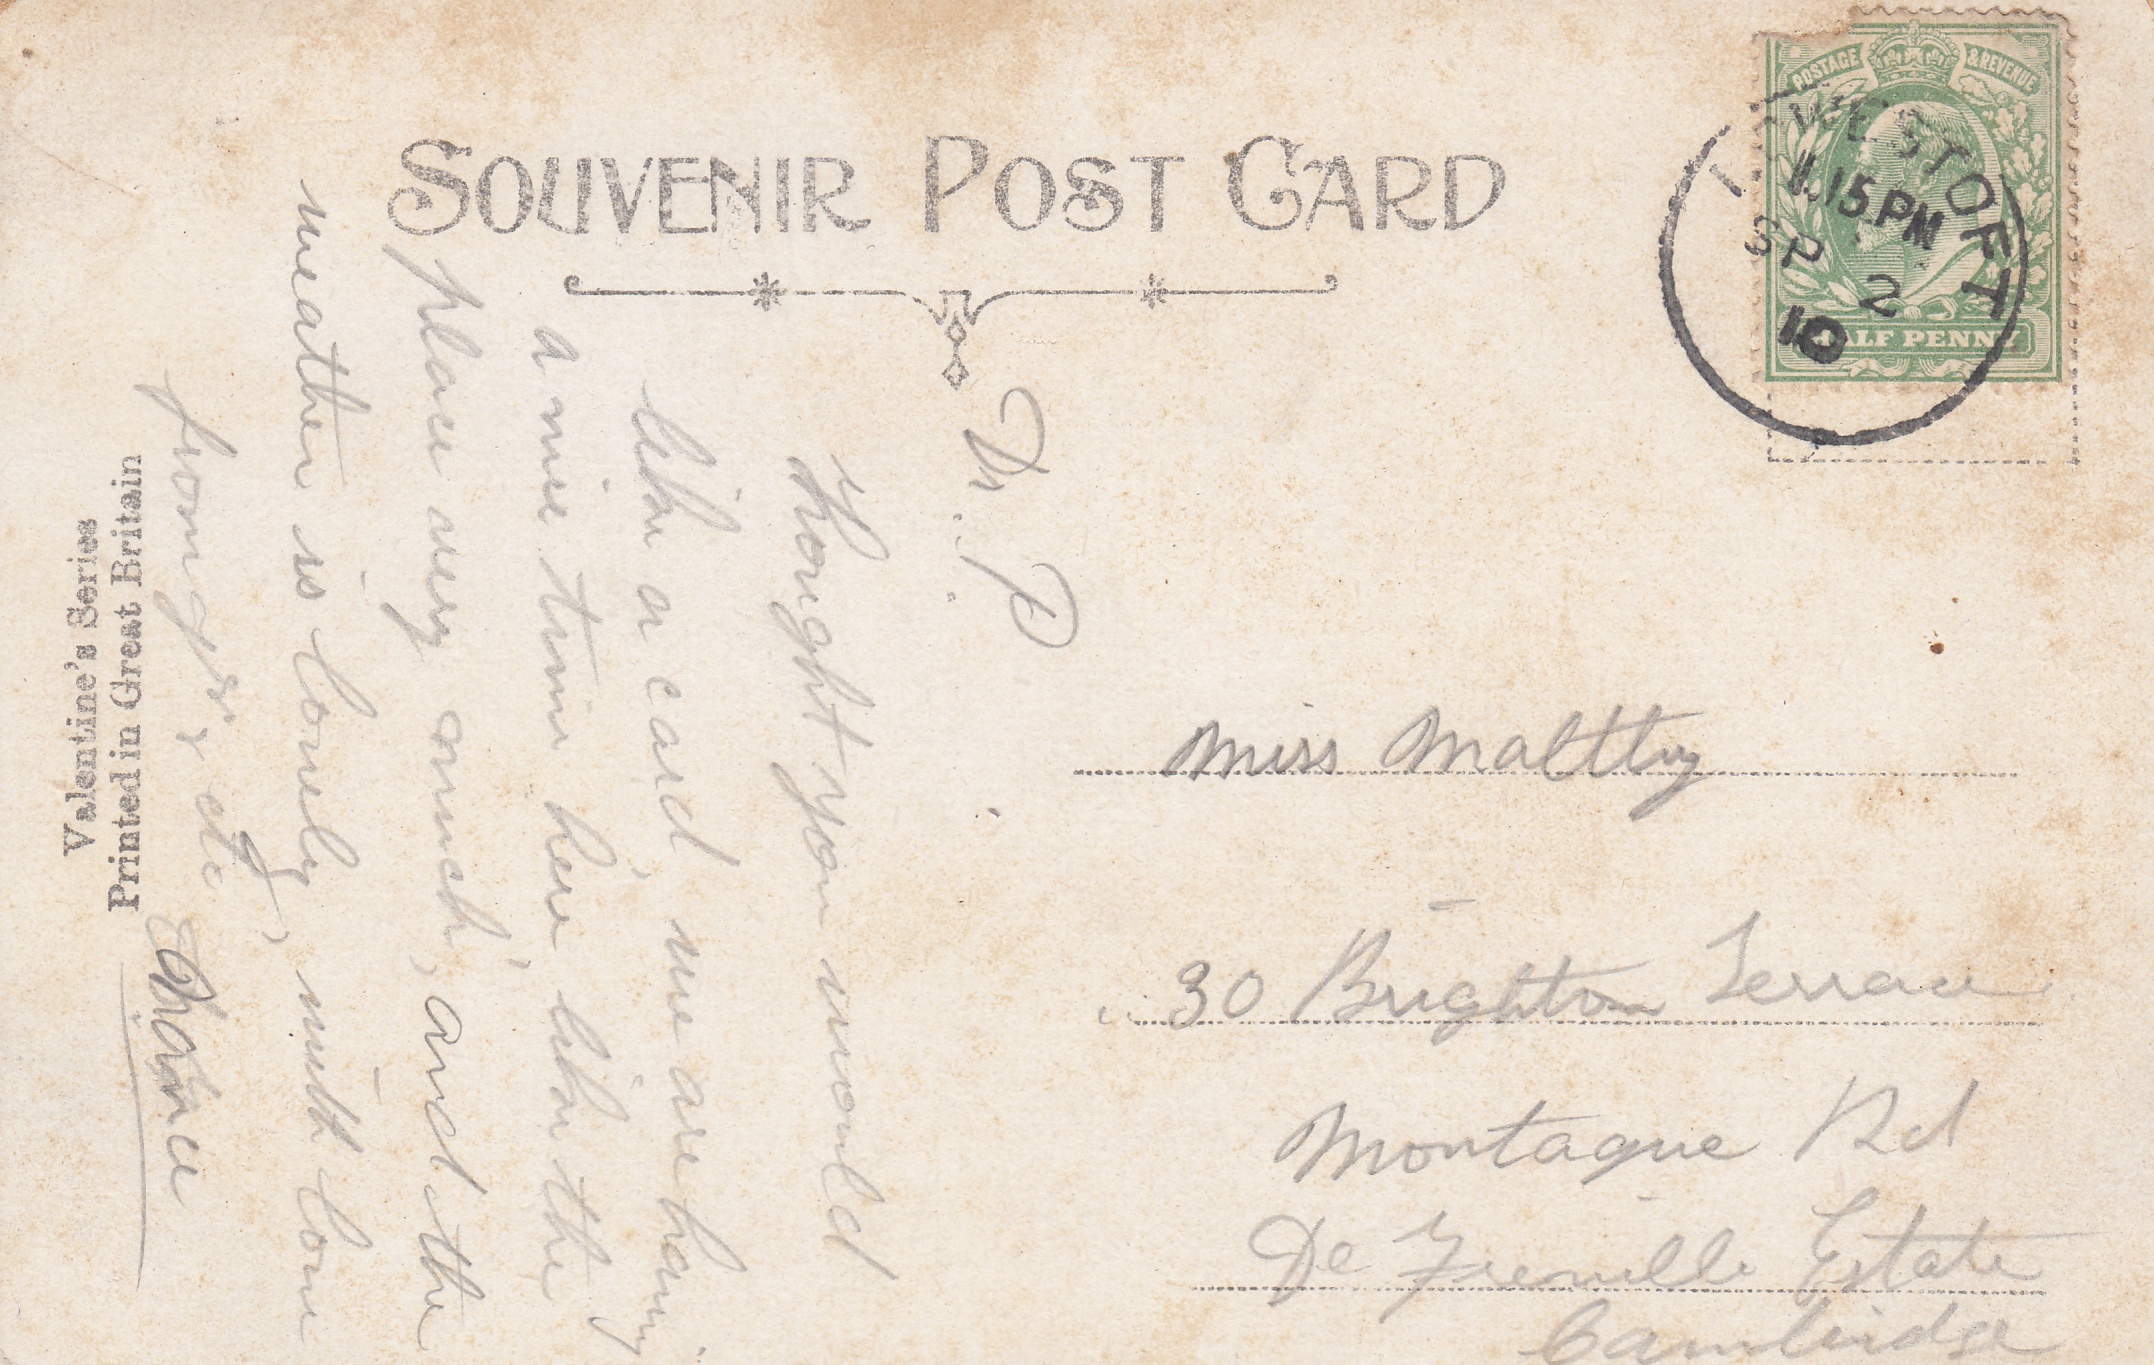 SOUVENIR POST CARD
POSTAGE & REVENUE
HALF PENNY
LOWESTOFT
11.15 PM
SP 2
10
Dr. P.
thought you would
like a card, we are having
a nice time here like the
place very much, and the
weather is lovely, with love
from
Valentine's Series
Printed in Great Britain
Miss Maltby
30 Brighton Terrace
Montague Rd
De Freville Estate
Cambridge